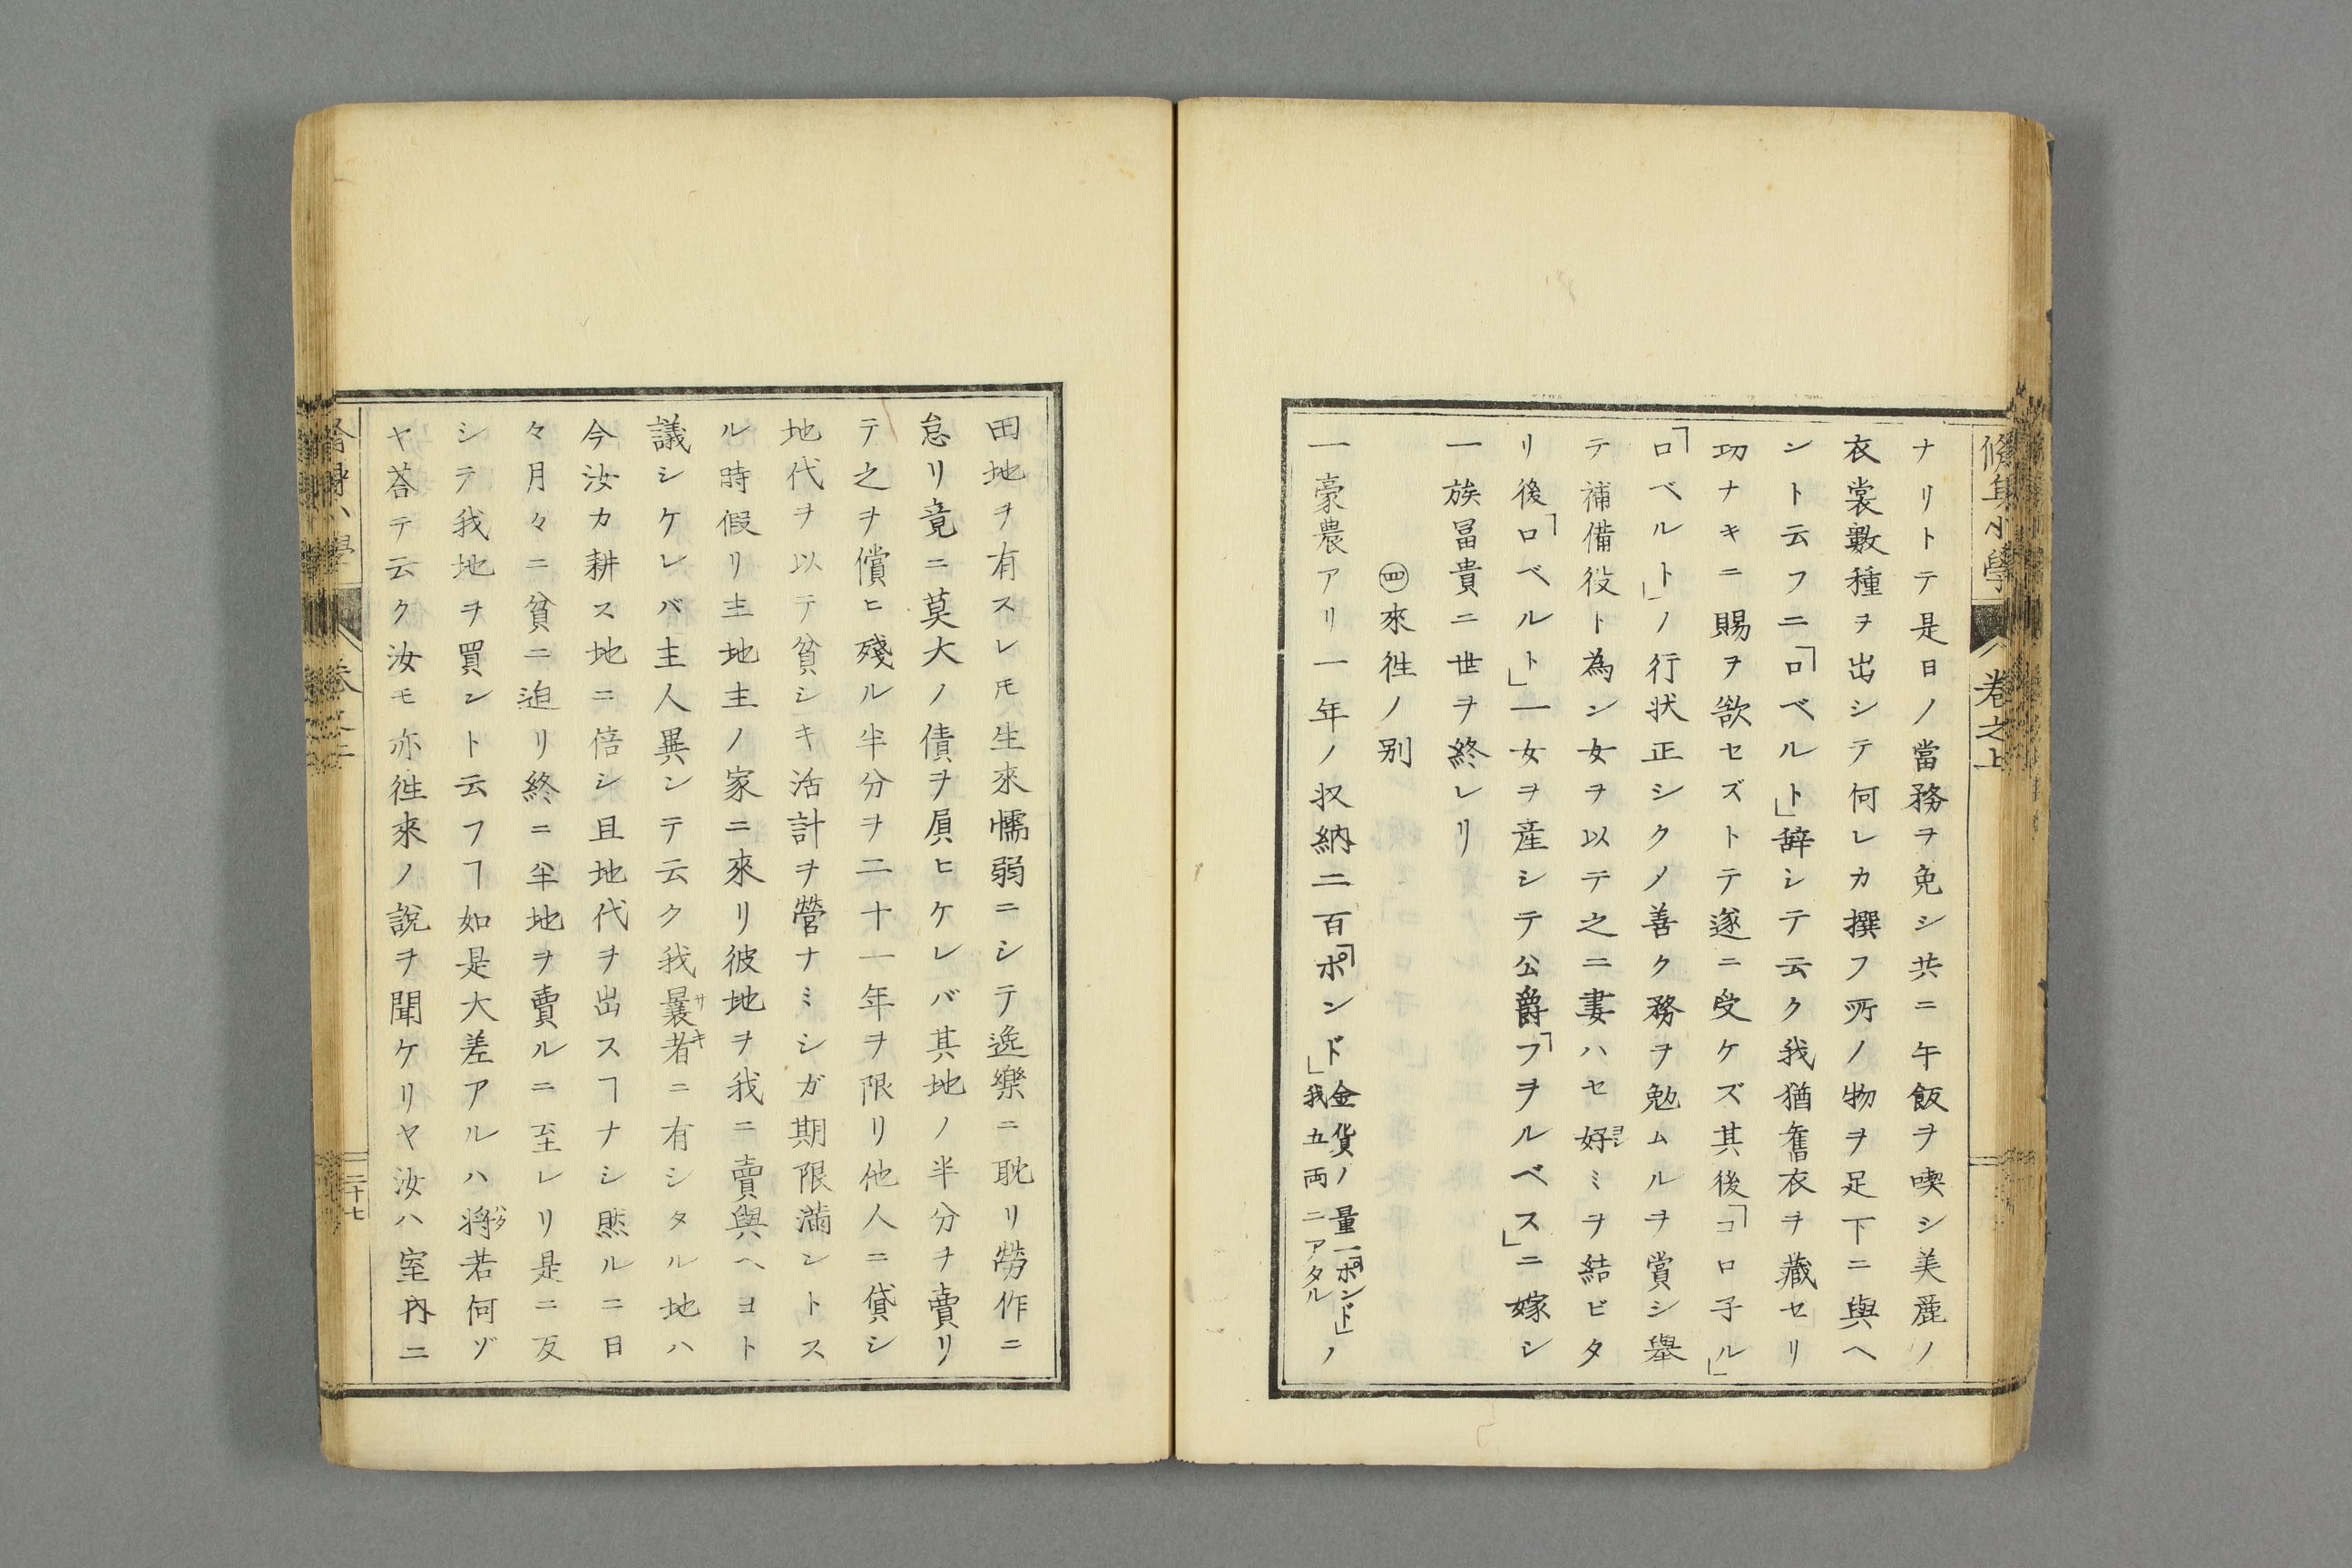 脩身小學
卷之上
ナリトテ是日ノ當務ヲ免シ共ニ午飯ヲ喫シ美麗ノ
衣裳數種ヲ出シテ何レカ撰フ所ノ物ヲ足下ニ與ヘ
ント云フニ「ロベルト」辞シテ云ク我猶舊衣ヲ藏セリ
功ナキニ賜ヲ欲セズトテ遂ニ受ケズ其後「コロ子ル」
「ロベルト」ノ行状正シクノ善ク務ヲ勉ムルヲ賞シ舉
テ補備役ト為シ女ヲ以テ之ニ妻ハセ好ヨシミヲ結ビタ
リ後「ロベルト」一女ヲ産シテ公爵「フヲルベス」ニ嫁シ
一族冨貴ニ世ヲ終レリ
㊃來徃ノ別
一豪農アリ一年ノ収納二百「ポンド」金貨ノ量一「ポンド」ノ
我五両ニアタル
田地ヲ有スレ𪜈生來懦弱ニシテ逸樂ニ耽リ勞作ニ
怠リ竟ニ莫大ノ債ヲ負ヒケレバ其地ノ半分ヲ賣リ
テ之ヲ償ヒ殘ル半分ヲ二十一年ヲ限リ他人ニ貸シ
地代ヲ以テ貧シキ活計ヲ營ナミシガ期限滿ントス
ル時假リ主地主ノ家ニ來リ彼地ヲ我ニ賣與ヘヨト
議シケレバ主人異ンテ云ク我曩者サキニ有シタル地ハ
今汝カ耕ス地ニ倍シ且地代ヲ出スヿナシ然ルニ日
々月々ニ貧ニ迫リ終ニ半地ヲ賣ルニ至レリ是ニ反
シテ我地ヲ買ント云フヿ如是大差アルハ將ハタ若何ゾ
ヤ荅テ云ク汝モ亦徃來ノ説ヲ聞ケリヤ汝ハ室内ニ
二十七